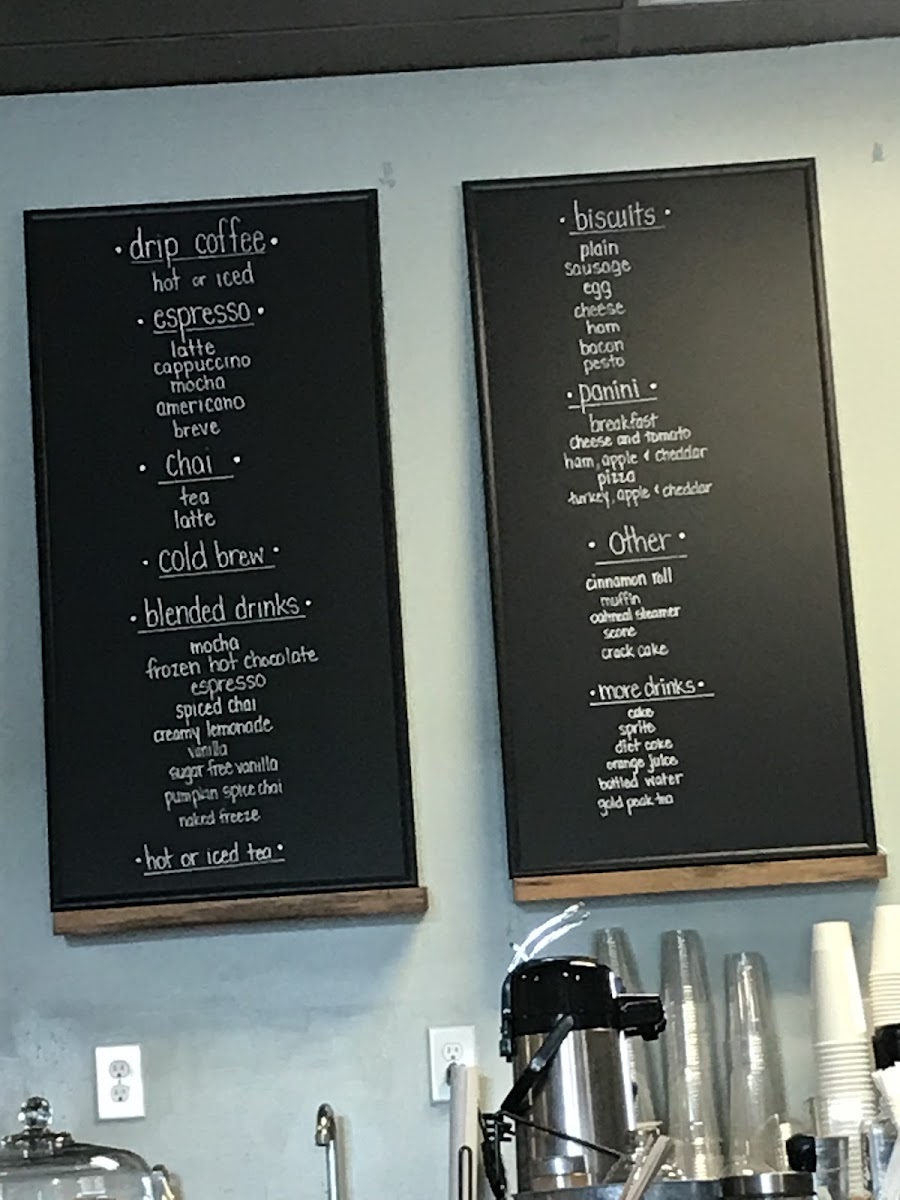 • drip coffee •
hot or iced
• espresso •
latte
cappuccino
mocha
americano
breve
• chai •
tea
latte
• cold brew •
• blended drinks •
mocha
frozen hot chocolate
espresso
spiced chai
creamy lemonade
vanilla
sugar free vanilla
pumpkin spice chai
naked freeze
• hot or iced tea •
• biscuits •
plain
sausage
egg
cheese
ham
bacon
pesto
• panini •
breakfast
cheese and tomato
ham, apple & cheddar
pizza
turkey, apple & cheddar
• other •
cinnamon roll
muffin
oatmeal steamer
scone
crack cake
• more drinks •
coke
sprite
diet coke
orange juice
bottled water
gold peak tea